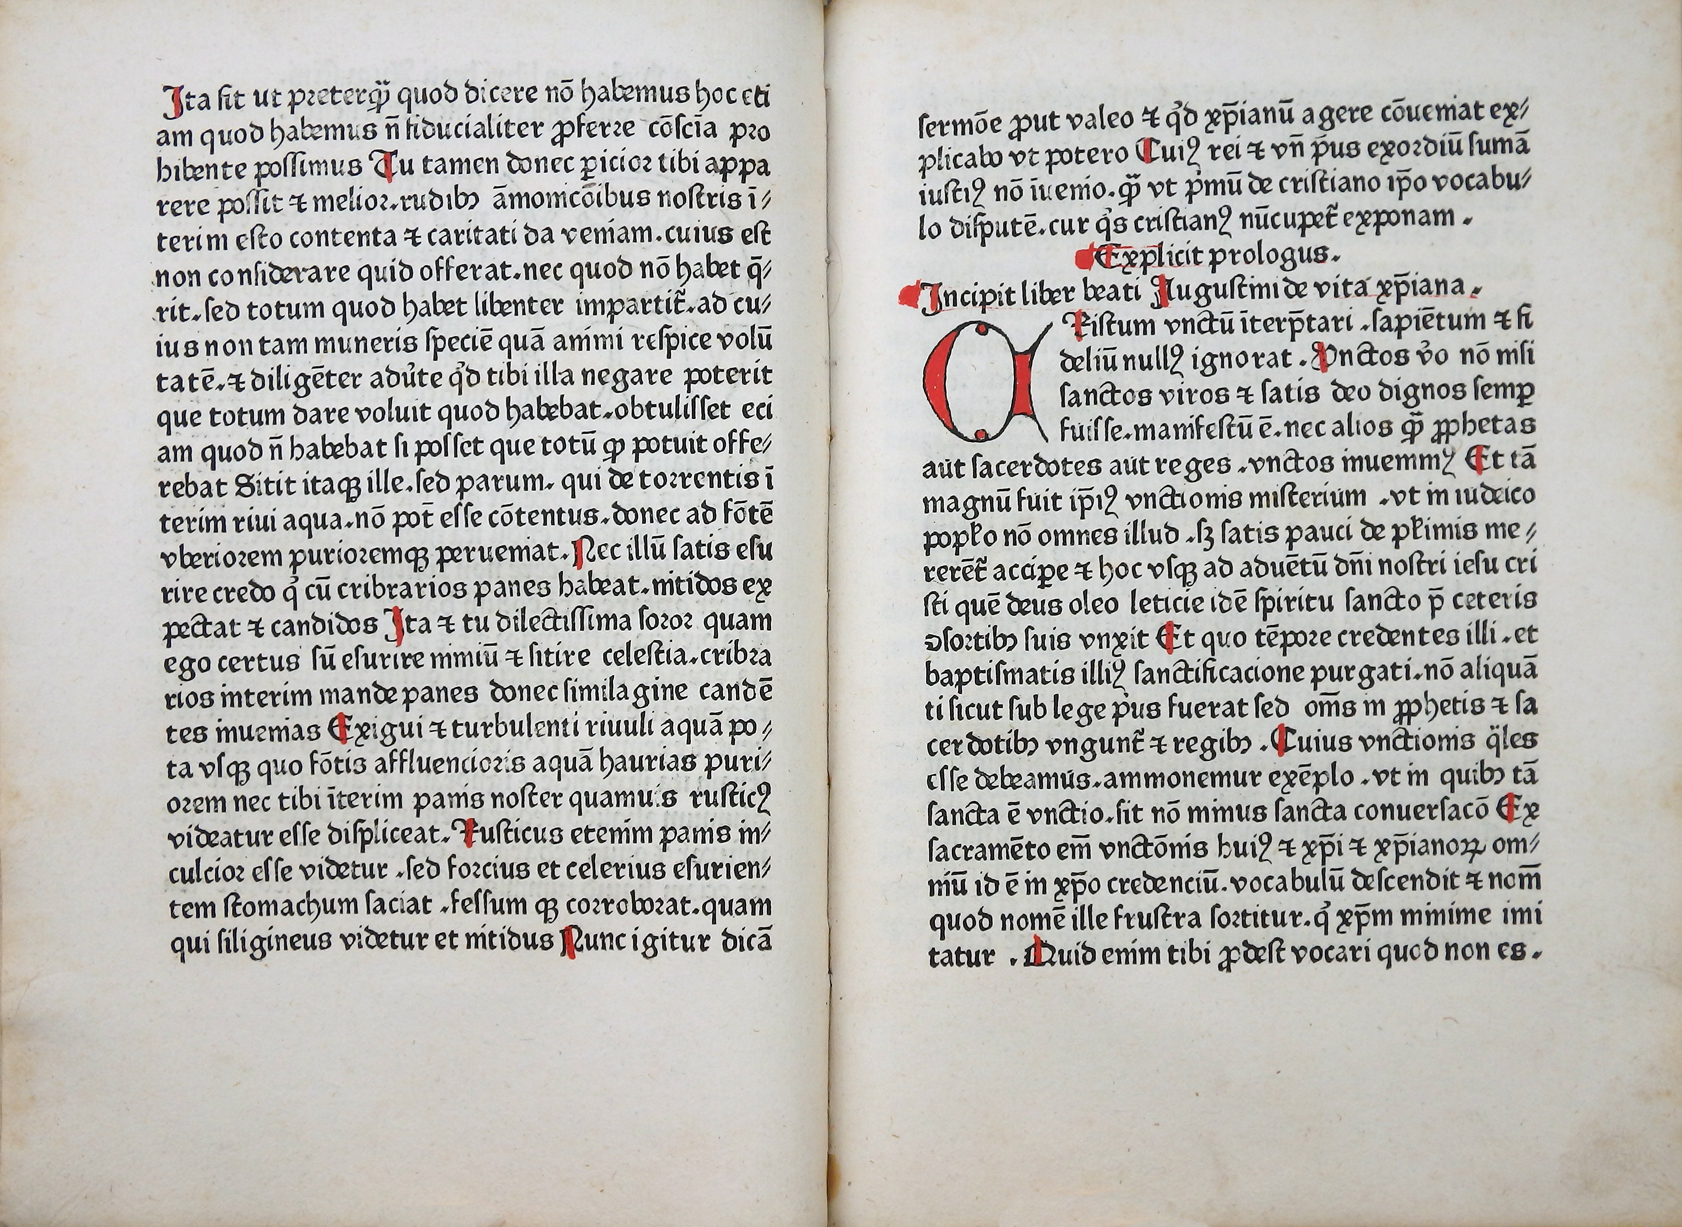 Ita fit ut preterqꝫ̃ quod dicere nō habemus hoc eti
am quod habemus ñ fiducialiter ꝓferre cōscīa pro
hibente possimus Tu tamen donec ꝑicior tibi appa
rere possit ⁊ melior.rudibꝫ āmonicōibus nostris ī⸗
terim esto contenta ⁊ caritati da veniam.cuius est
non considerare quid offerat.nec quod nō habet q̄⸗
rit.sed totum quod habet libenter impartit᷑.ad cu⸗
ius non tam muneris speciē quā animi respice volū
tatē.⁊ diligēter adu͛te qͦd tibi illa negare poterit
que totum dare voluit quod habebat.obtulisset eci
am quod ñ habebat si posset que totū qꝫ potuit offe⸗
rebat Sitit itaqꝫ ille.sed parum. qui de torrentis ī
terim riui aqua.nō pot̄ esse cōtentus.donec ad fōtē
vberiorem purioremqꝫ perueniat.Nec illū satis esu
rire credo qͥ cū cribrarios panes habeat.nitidos ex
pectat ⁊ candidos Ita ⁊ tu dilectissima soror quam
ego certus sū esurire nimiū ⁊ sitire celestia.cribra
rios interim mande panes donec similagine candē
tes inuenias Exigui ⁊ turbulenti riuuli aquā po⸗
ta vsqꝫ quo fōtis affluencioris aquā haurias puri⸗
orem nec tibi īterim panis noster quamuis rusticꝰ
videatur esse displiceat.Rusticus etenim panis in⸗
culcior esse videtur .sed forcius et celerius esurien⸗
tem stomachum saciat .fessum qꝫ corroborat.quam
qui siligineus videtur et nitidus Nunc igitur dicā
sermōe ꝓut valeo ⁊ qͦd xp̄ianū agere cōueniat ex⸗
plicabo vt potero Cuiꝰ rei ⁊ vñ pͥus exordiū sumā
iustiꝰ nō īuenio.qꝫ̃ vt pͥmū de cristiano ip̄o vocabu⸗
lo disputē.cur qͥs cristianꝰ nūcupet᷑ exponam .
Explicit prologus.
Incipit liber beati Augustini de vita xp̄iana.
CRistum vnctū īterp̄tari .sapiētum ⁊ fi
deliū nullꝰ ignorat .Vnctos v͛o nō nisi
sanctos viros ⁊ satis deo dignos semꝑ
fuisse.manifestū ē.nec alios qꝫ̃ ꝓphetas
aut sacerdotes aut reges .vnctos inuenimꝰ Et tā
magnū fuit ip̄iꝰ vnctionis misterium .vt in iudeico
popl̄o nō omnes illud .sꝫ satis pauci de pl̄imis me⸗
rerēt᷑ acciꝑe ⁊ hoc vsqꝫ ad aduētū dñi nostri iesu cri
sti quē deus oleo leticie idē spiritu sancto p̄ ceteris
ꝯsortibꝫ suis vnxit Et quo tēpore credentes illi.et
baptismatis illiꝰ sanctificacione purgati.nō aliquā
ti sicut sub lege pͥus fuerat sed om̄s in ꝓphetis ⁊ sa
cerdotibꝫ vngunt᷑ ⁊ regibꝫ .Cuius vnctionis q̄les
esse debeamus.ammonemur exēplo .vt in quibꝫ tā
sancta ē vnctio.sit nō minus sancta conuersacō Ex
sacramēto em̄ vnctōnis huiꝰ ⁊ xp̄i ⁊ xp̄ianoꝝ om⸗
niū id ē in xp̄o credenciū.vocabulū descendit ⁊ nom̄
quod nomē ille frustra sortitur.qͥ xp̄m minime imi
tatur .Quid enim tibi ꝓdest vocari quod non es.